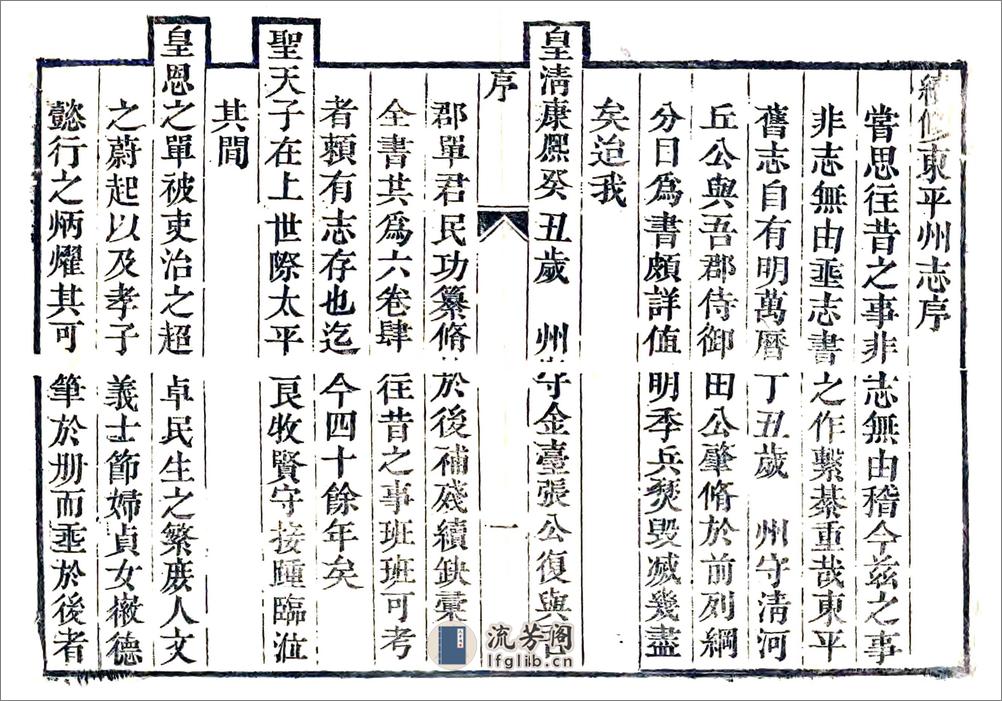 續修東平州志序
嘗思往昔之事非志無由稽今茲之事
非志無由垂志書之作繫綦重哉東平
舊志自有明萬曆丁丑歲　州守清河
丘公與吾郡侍御田公肇脩於前列綱
分目爲書頗詳值明季兵燹毀滅幾盡
矣迨我
皇清康熙癸丑歲　州守金臺張公復與
序　一
郡單君民功纂脩於後補殘續缺彙
全書共爲六卷肆往昔之事班班可考
者賴有志存也迄今四十餘年矣
聖天子在上世際太平良牧賢守接踵臨涖
其間
皇恩之單被吏治之超卓民生之繁庶人文
之蔚起以及孝子義士節婦貞女徽德
懿行之炳燿其可筆於册而垂於後者
流芳阁
lfglib.cn